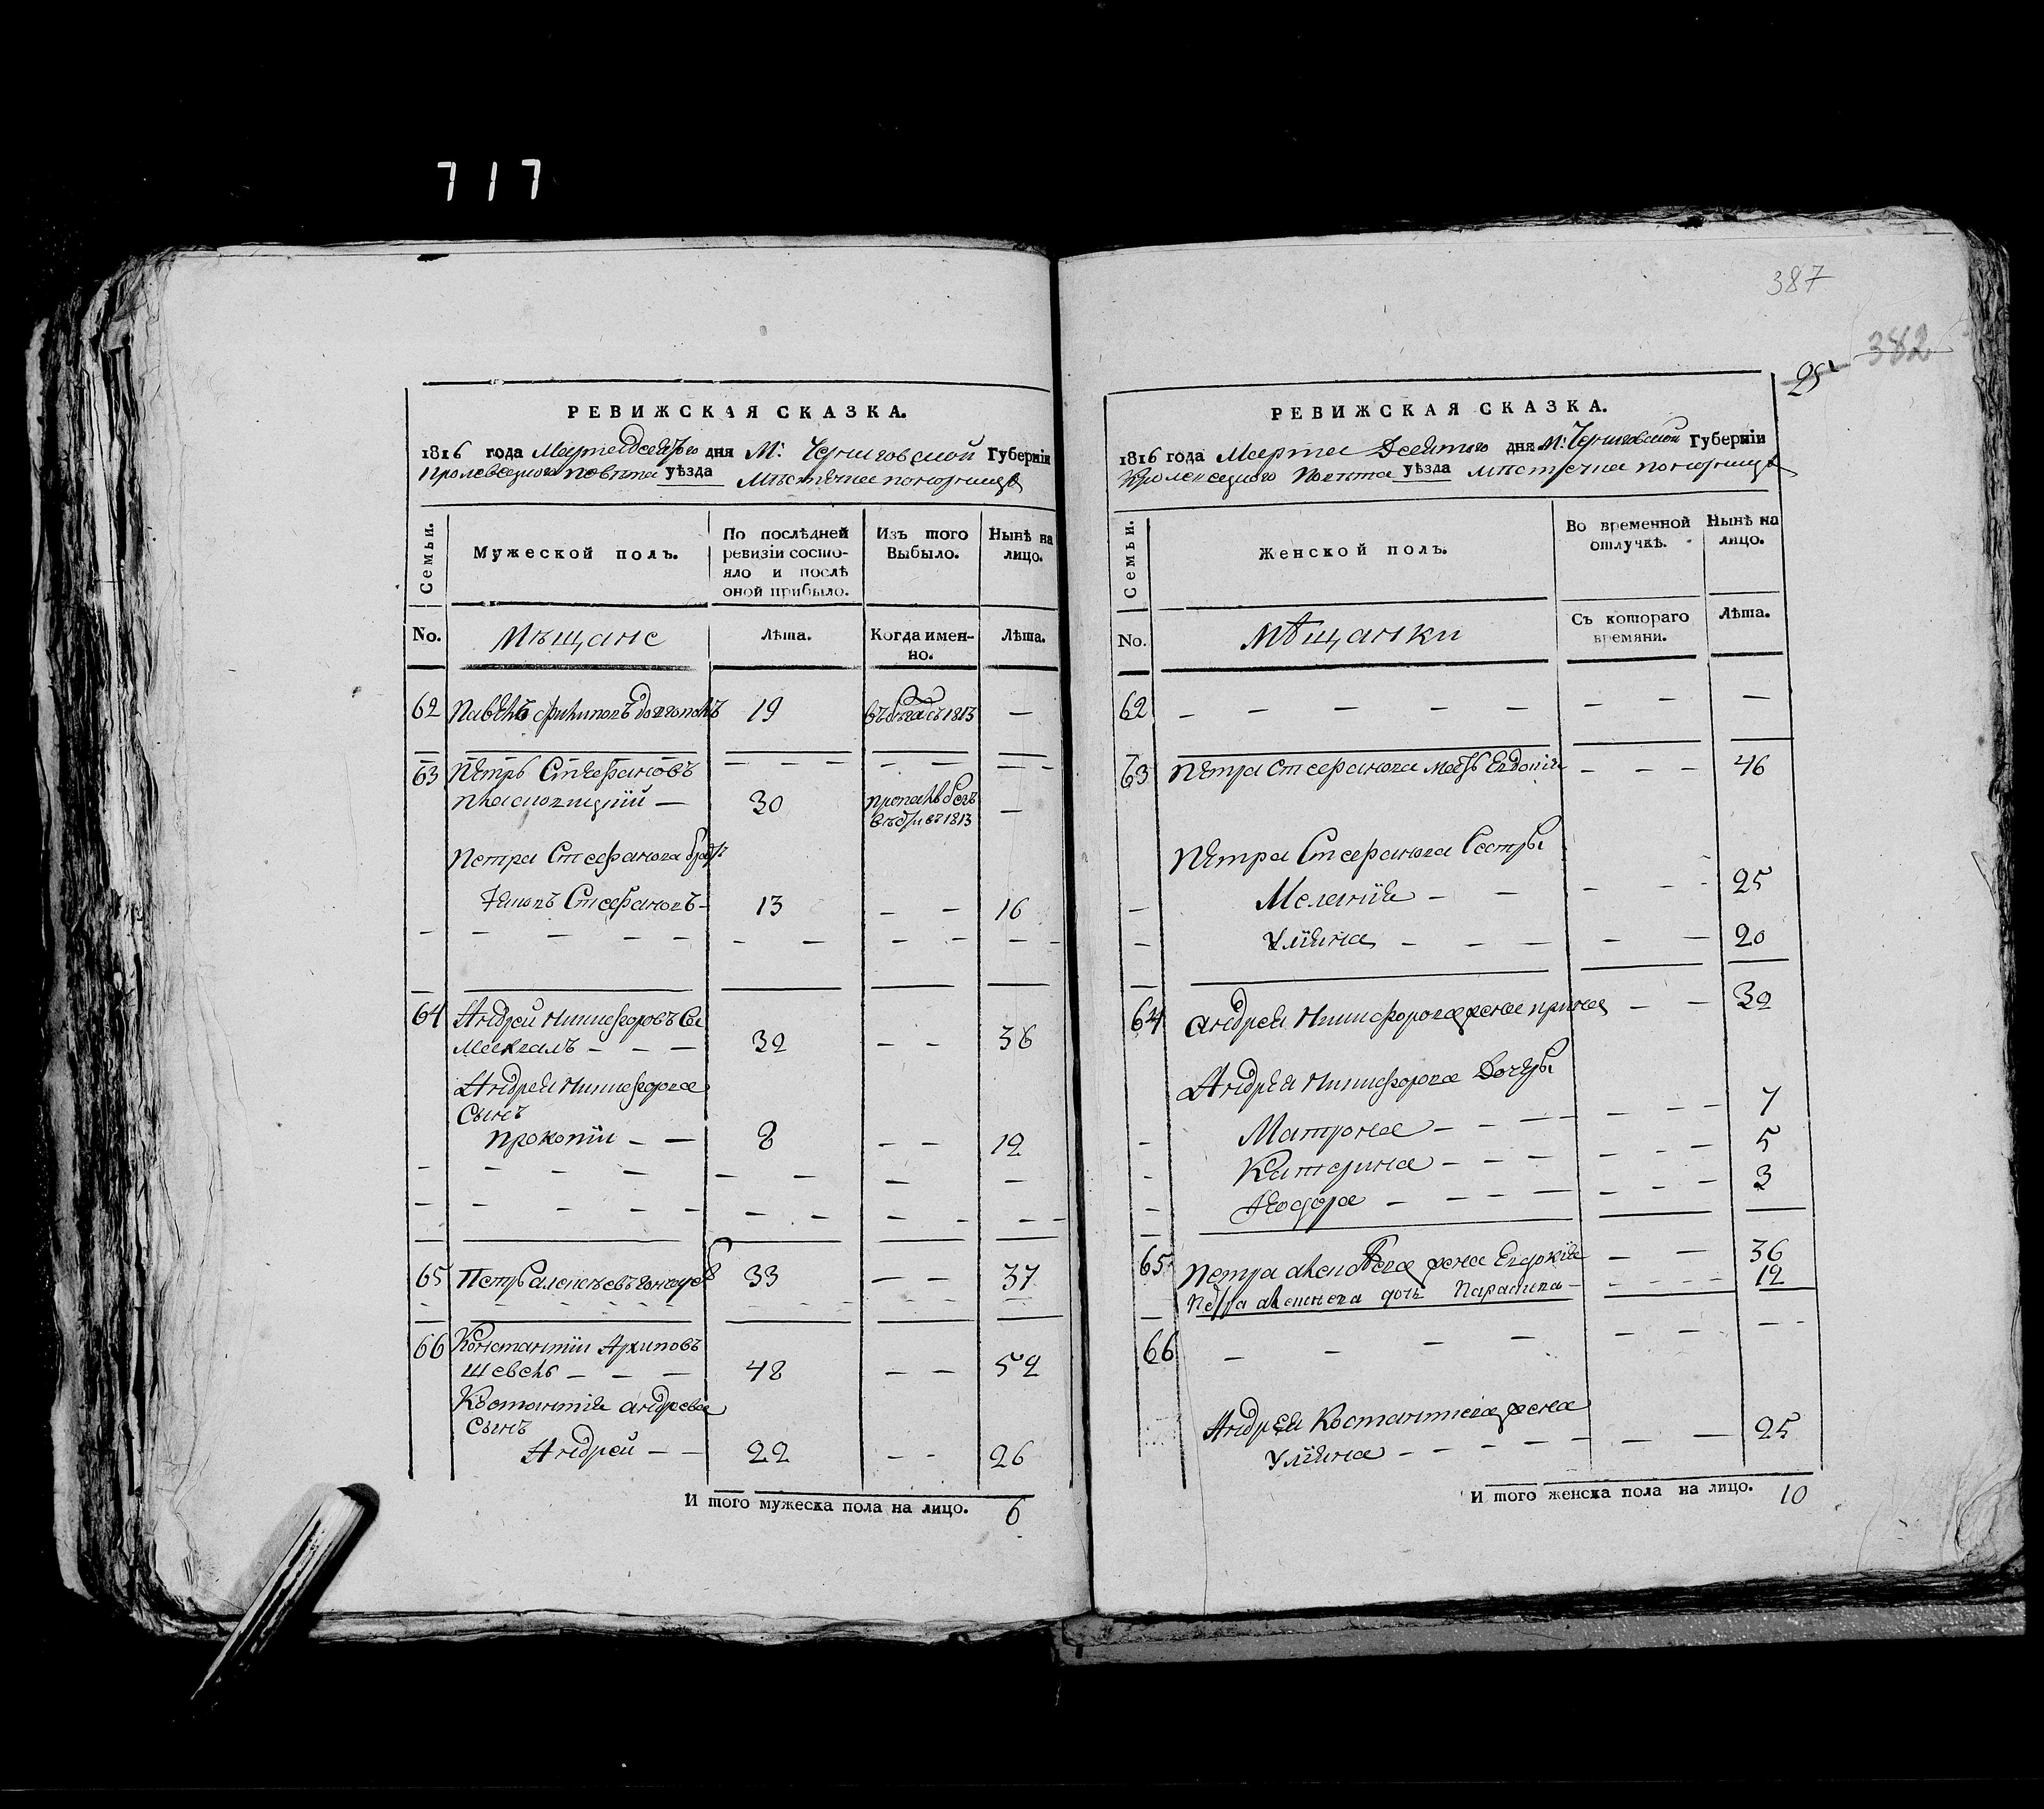 717
РЕВИЖСКАЯ СКАЗКА.
1816 года Марта десятого дня М: Черниговской Губернїи
Кролевецкого повѣта уѣзда Мѣстечка понорницѣ
Семьи.
Мужеской полъ.
По послѣдней
ревизїи состо-
яло и послѣ
оной прибыло.
Изъ того
Выбыло.
Нынѣ на
лицо.
No. Мѣщане Лѣта. Когда имен-
но. Лѣта.
62 Павелъ Филиповъ 19 въ 1813 —
63 Петръ Стефановъ
30 въ 1813 —
Петра Стефанова братъ
Стефановъ 13 — — 16
64 Андрей Никифоровъ
32 — — 36
Андрея Никифорова
Сынъ
Прокопїи — — 8 — — 12
65 Петръ алексѣевъ гончаръ 33 — — 37
66 Константїи Архиповъ
Швець — — — 48 — — 52
Костантїя андреева
сынъ
Андрей — — 22 — - 26
И того мужеска пола на лицо. 6
387
382
25
РЕВИЖСКАЯ СКАЗКА.
1816 года Марта Десятого дня М: Черниговской Губернїи
Кролевецкого Повѣта уѣзда мѣстечка понорницѣ
Семьи.
Женской полъ.
Во временной
отлучкѣ.
Нынѣ на
лицо.
No. Мѣщанки Съ котораго
времяни. Лѣта.
62 — — — — — — — —
63 Петра Стефанова мать Евдокїя — — — 46
Петра Стефанова Сестры
Меланїя — — — - - 25
Улїяна — — — — — 20
64 андрея Никифорова жена ирина — — 32
Андрея Никифорова Дочеры
Матрона — — — — — - — 7
Катерина — — — — - — 5
Феодора — — — — — - — 3
65 Петра алексѣева жена Евдокїя — — 36
Петра алексѣева дочь Параска — — - - — 12
66 — — — — — — — -
Андрея Костантиева жена
Улїяна — — — — — — — 25
И того женска пола на лицо. 10